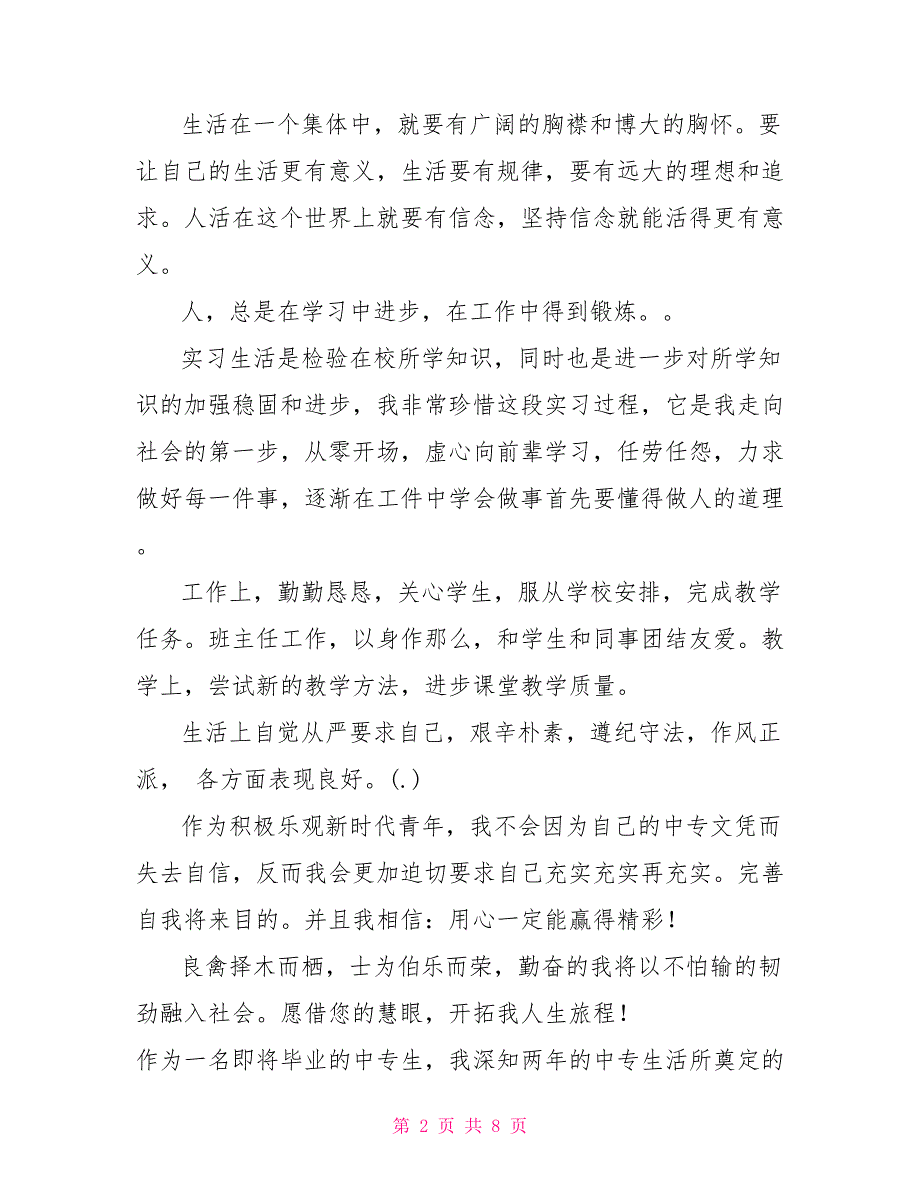 生活在一个集体中，就要有广阔的胸襟和博大的胸怀。要
让自己的生活更有意义，生活要有规律，要有远大的理想和追
求。人活在这个世界上就要有信念，坚持信念就能活得更有意
义。
人，总是在学习中进步，在工作中得到锻炼。。
实习生活是检验在校所学知识，同时也是进一步对所学知
识的加强稳固和进步，我非常珍惜这段实习过程，它是我走向
社会的第一步，从零开场，虚心向前辈学习，任劳任怨，力求
做好每一件事，逐渐在工件中学会做事首先要懂得做人的道理
。
工作上，勤勤恳恳，关心学生，服从学校安排，完成教学
任务。班主任工作，以身作那么，和学生和同事团结友爱。教
学上，尝试新的教学方法，进步课堂教学质量。
生活上自觉从严要求自己，艰辛朴素，遵纪守法，作风正
派， 各方面表现良好。(.)
作为积极乐观新时代青年，我不会因为自己的中专文凭而
失去自信，反而我会更加迫切要求自己充实充实再充实。完善
自我将来目的。并且我相信：用心一定能赢得精彩！
良禽择木而栖，士为伯乐而荣，勤奋的我将以不怕输的韧
劲融入社会。愿借您的慧眼，开拓我人生旅程！
作为一名即将毕业的中专生，我深知两年的中专生活所奠定的
第 2 页 共 8 页